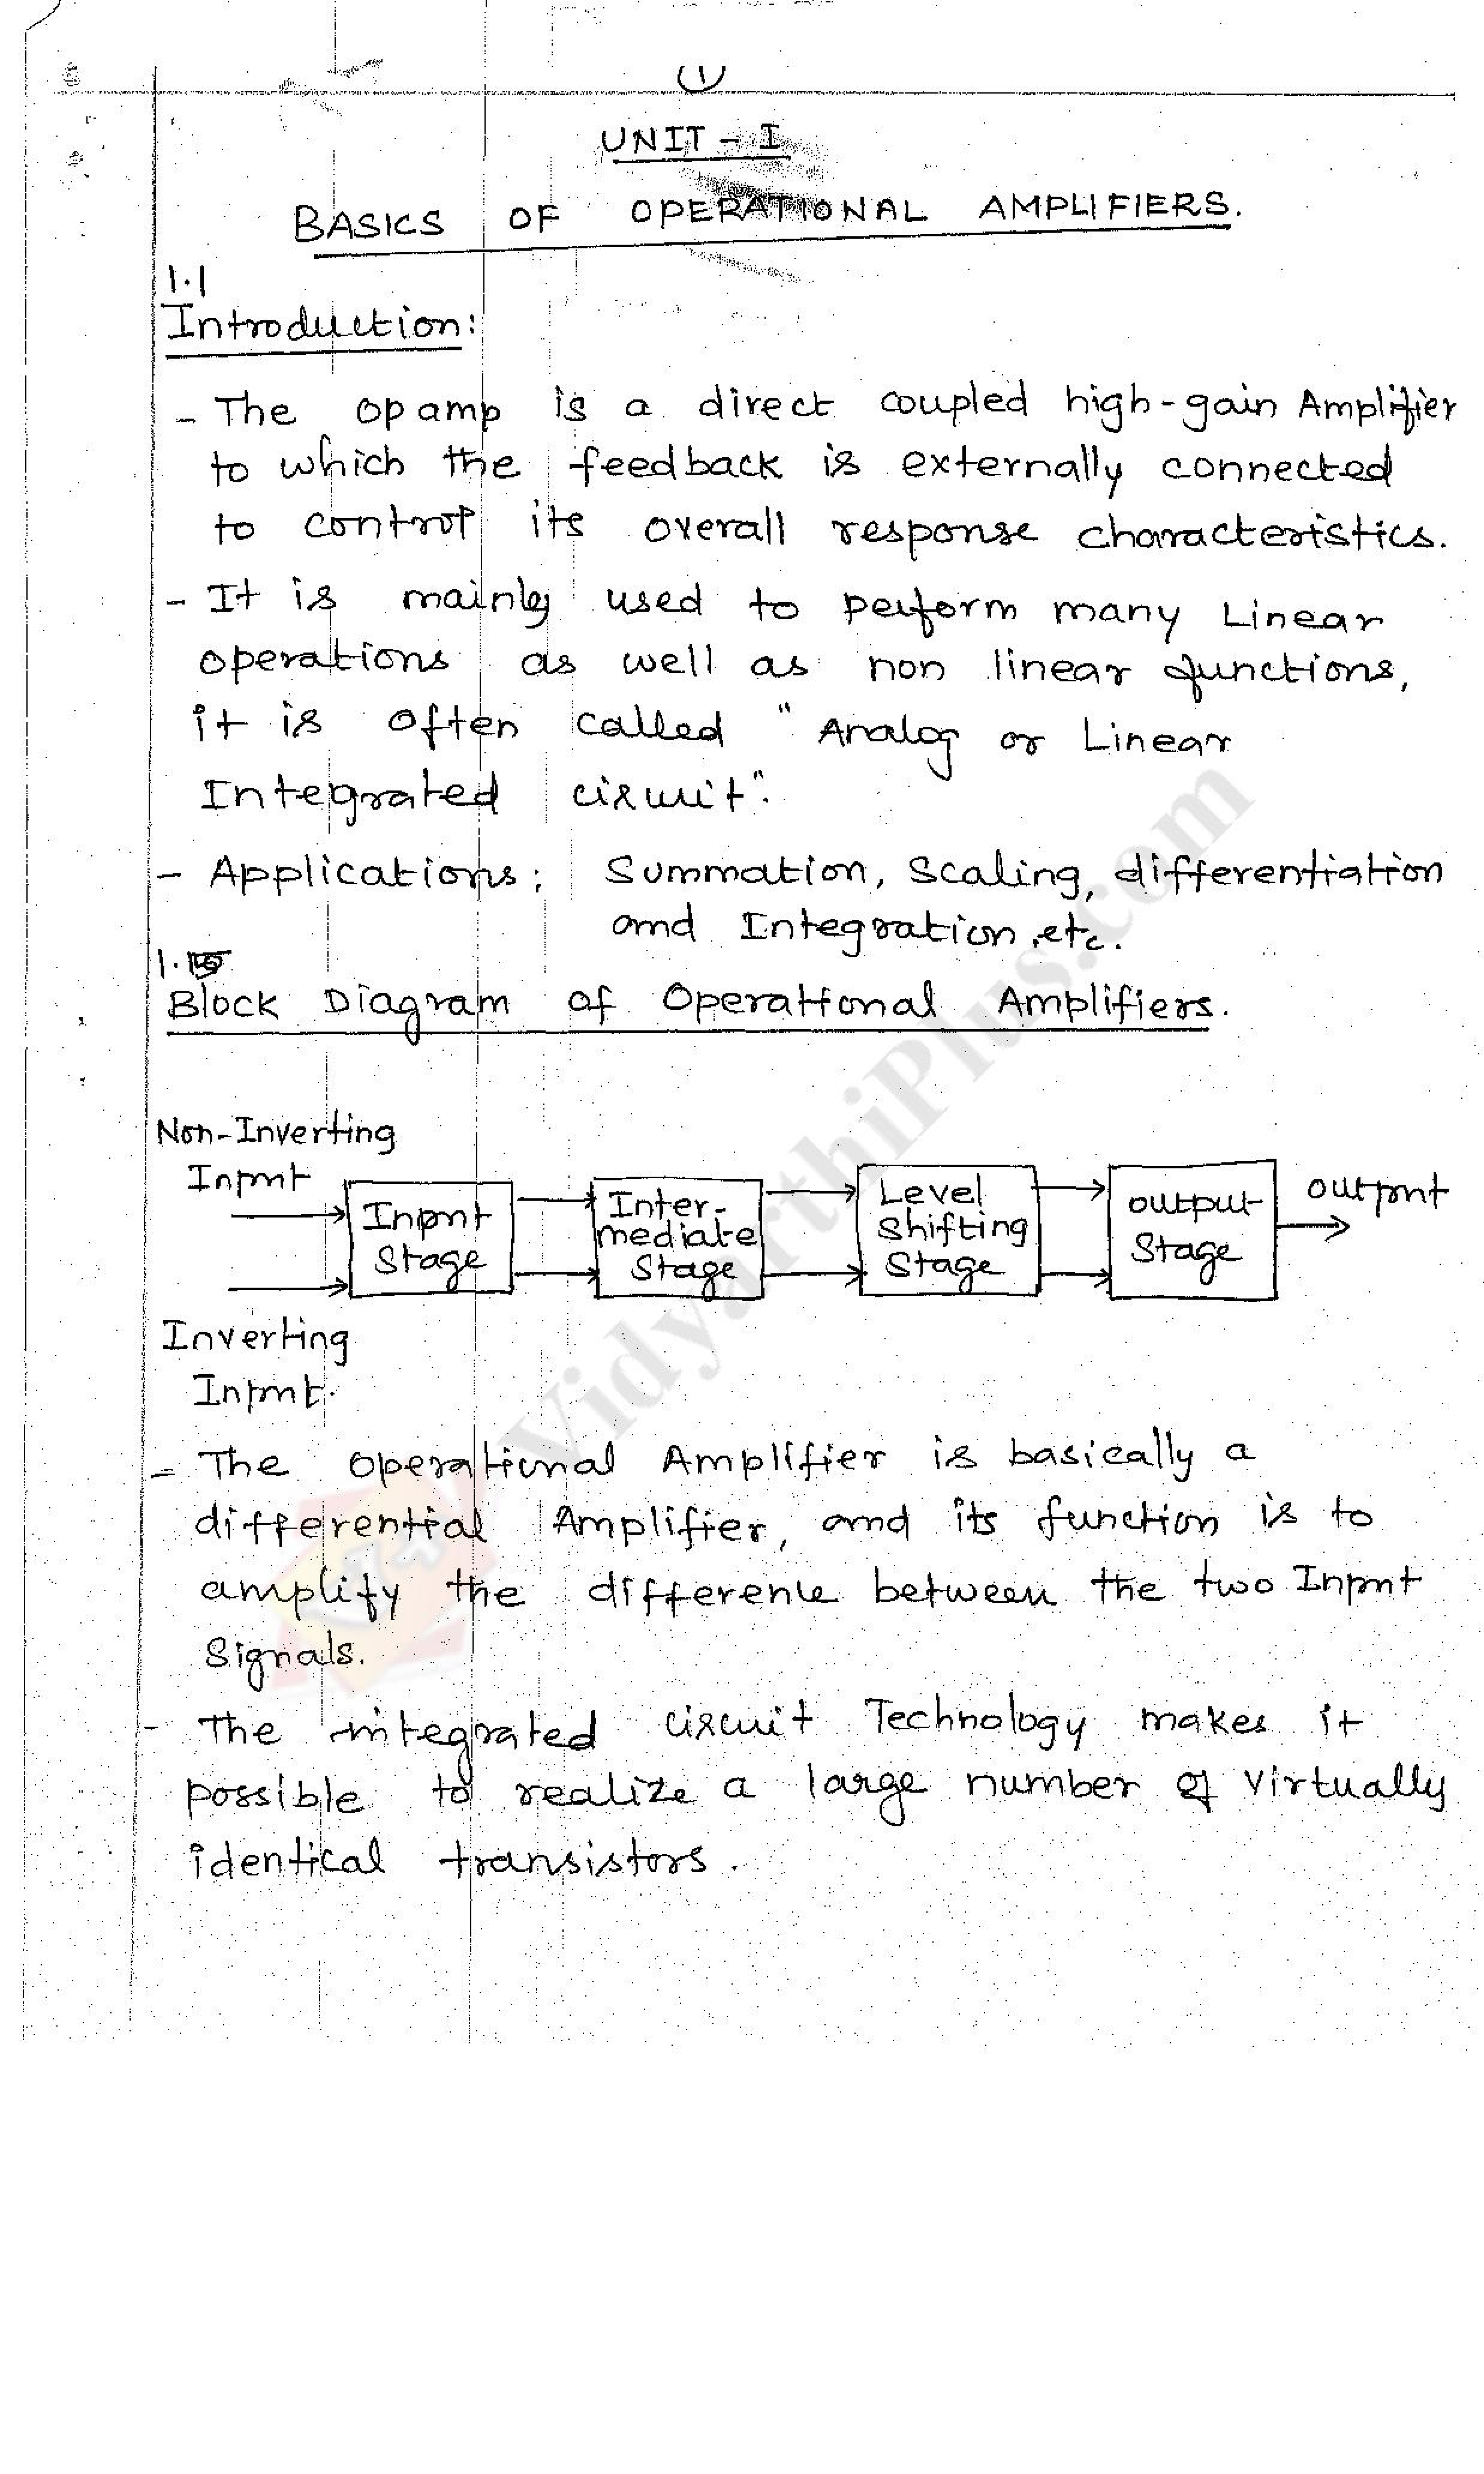 1
UNIT - I
BASICS OF OPERATIONAL AMPLIFIERS.
1.1
Introduction:
- The opamp is a direct coupled high-gain Amplifier
to which the feedback is externally connected
to control its overall response characteristics.
- It is mainly used to perform many Linear
operations as well as non linear functions,
it is often called " Analog or Linear
Integrated circuit".
- Applications: Summation, Scaling, differentiation
and Integration, etc.
Block Diagram of Operational Amplifiers.
Non-Inverting
Input
Input
Stage
Inter-
mediate
Stage
Level
Shifting
Stage
output
Stage
output
Inverting
Input.
- The Operational Amplifier is basically a
differential Amplifier, and its function is to
amplify the difference between the two Input
Signals.
- The integrated circuit Technology makes it
possible to realize a large number of virtually
identical transistors.
VidyarthiPlus.com